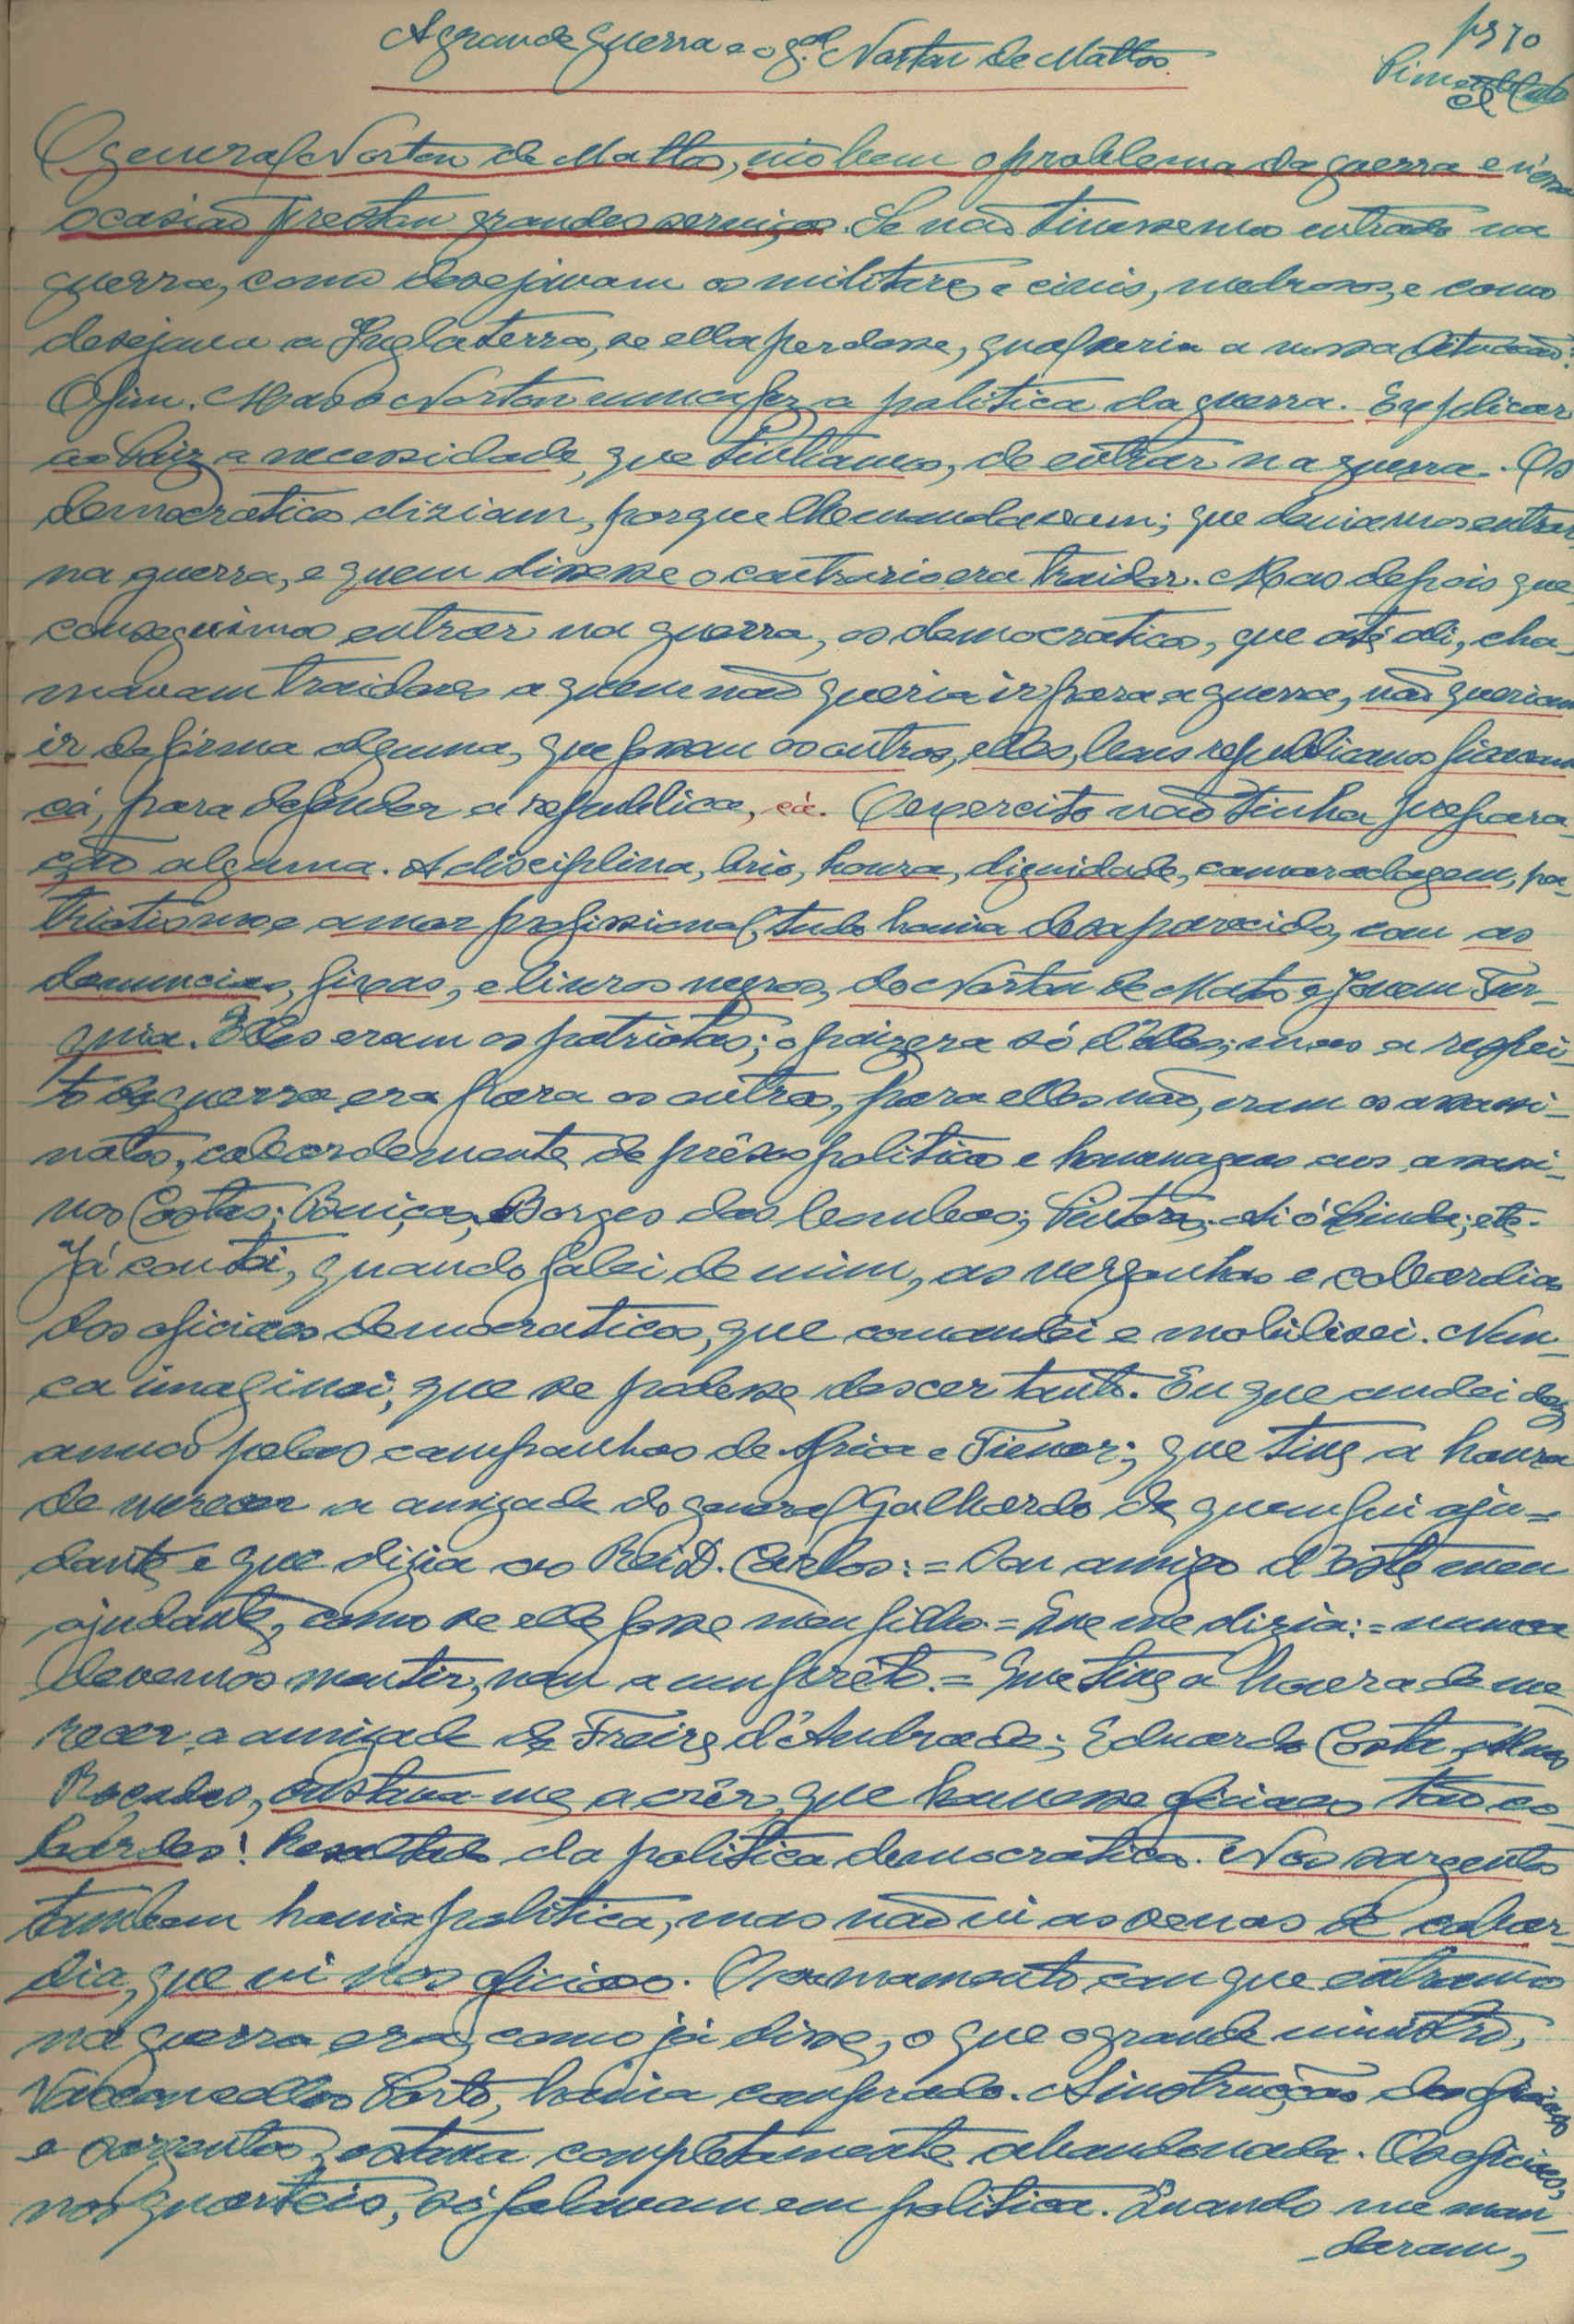 A grande guerra e o g.al Norton de Mattos.
O general Norton de Mattos, viu bem o problema da guerra e n'essa
ocasião prestou grandes serviços. Se não tivessemos entrado na
guerra, como desejavam os militares e civis, medrosos, e como
desejava a Inglaterra, se ella perdesse, qual seria a nossa situação?
O fim. Mas o Norton nunca fez a politica da guerra. Explicar
ao Paiz a necessidade, que tinhamos, de entrar na guerra. Os
democraticos diziam, porque lhe mandavam; que deviamos entrar
na guerra, e quem dissesse o contrario era traidor. Mas depois que
conseguimos entrar na guerra, os democraticos, que até ali, cha-
mavam traidores a quem não queria ir para a guerra, não queriam
ir de fórma alguma, que fossem os outros, elles, bons republicanos ficavam
cá, para defender a republica, cá. O exercito não tinha prepara-
ção alguma. A disciplina, brio, honra, dignidade, camaradagem, pa-
triotismo e amor profissional, tudo havia desaparecido, com as
denuncias, fixas, e livros negros, do Norton de Matos e Jovem Tur-
quia. Elles eram os patriotas; o paiz era só d'elles; mas a respei-
to de guerra era para os outros, para elles não, eram os assassi-
natos, cobardemente de prêsos politicos e homenagens aos assassi-
nos Costas; Buiças; Borges das bombas; Pintor; Ai ó Linda; etc.
Já contei, quando falei de mim, as vergonhas e cobardias
dos oficiaes democraticos, que comandei e mobilisei. Nun-
ca imaginei, que se podesse descer tanto. Eu que andei dez
annos pelas campanhas de Africa e Timor; que tive a honra
de merecer a amizade do general Galhardo de quem fui aju=
dante e que dizia ao Rei D. Carlos: = Sou amigo d'este meu
ajudante, como se elle fosse meu filho = Que me dizia: = nunca
devemos mentir, nem a um preto. = Que tive a honra de me-
recer a amizade de Freire d'Andrade; Eduardo Costa, Alves
Roçadas, custava-me a crêr, que houvesse oficiaes tão co-
bardes! Resultado da politica democratica. Nos sargentos
tambem havia politica, mas não vi as scenas de cobar-
dia, que vi nos oficiaes. O armamento com que entramos
na guerra era, como já disse, o que o grande ministro,
Vasconcellos Porto, havia comprado. A instrucção dos oficiaes
e sargentos, estava completamente abandonada. Os oficiaes,
nos quarteis, só falavam em politica. Quando me man-
daram,